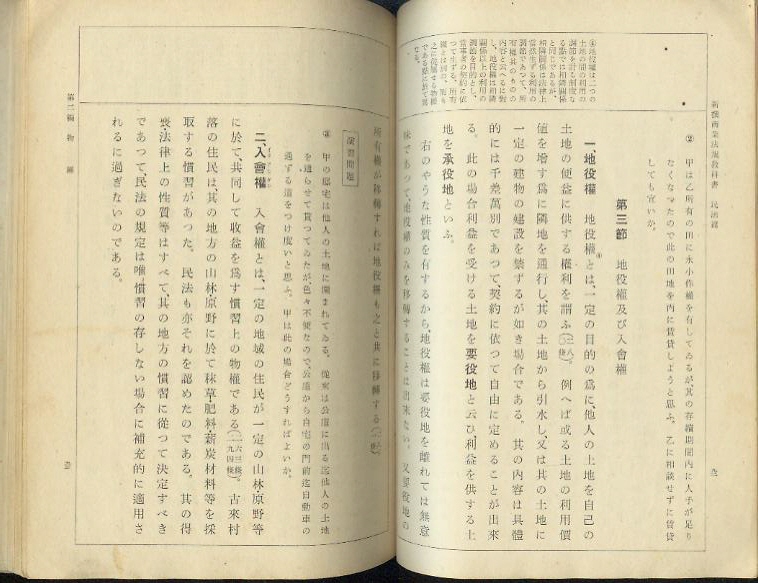 新撰商業法規教科書 民法篇
② 甲は乙所有の田に永小作權を有してゐるが其の存續期間内に人手が足り
なくなつたので此の田地を丙に賃貸しようと思ふ。乙に相談せずに賃貸
しても宜いか。
第三節 地役權及び入會權
一、地役權 地役權とは、一定の目的の爲に、他人の土地を自己の
土地の便益に供する權利を謂ふ 例へば或る土地の利用價
値を增す爲に隣地を通行し、其の土地から引水し、又は其の土地に
一定の建物の建設を禁ずるが如き場合である。其の内容は具體
的には千差萬別であつて、契約に依つて自由に定めることが出來
る。此の場合利益を受ける土地を要役地と云ひ、利益を供する土
地を承役地といふ。
右のやうな性質を有するから、地役權は要役地を離れては無意
味であつて、地役權のみを移轉することは出來ない。又要役地の
④地役權は二つの
土地の間の利用の
調節を計る制度な
る點では相隣關係
と同じであるが、
相隣關係は法律上
當然生ずる利用の
調節であつて、所
有權其のものの
内容と云へるに對
し、地役權は相隣
關係以上の利用の
調節を目的とし、
當事者の契約に依
つて生ずる、所有
權とは別の、而も
之に從屬せる物權
である點に於て異
なる。
所有權が移轉すれば地役權も之と共に移轉する
演習問題
甲の邸宅は他人の土地に圍まれてゐる。從來は公道に出る迄他人の土地
を通らせて貰つてゐたが色々不便なので、公道から自宅の門前迄自動車の
通ずる道をつけ度いと思ふ。甲は此の場合どうすればよいか。
二、入會權 入會權とは、一定の地域の住民が一定の山林原野等
に於て、共同して收益を爲す慣習上の物權である(二六三條、二九四條)。古來村
落の住民は、其の地方の山林原野に於て秣草・肥料・薪炭材料等を採
取する慣習があつた。民法も亦それを認めたのである。其の得
喪・法律上の性質等はすべて、其の地方の慣習に從つて決定すべき
であつて、民法の規定は唯慣習の存しない場合に補充的に適用さ
れるに過ぎないのである。
第二編 物權